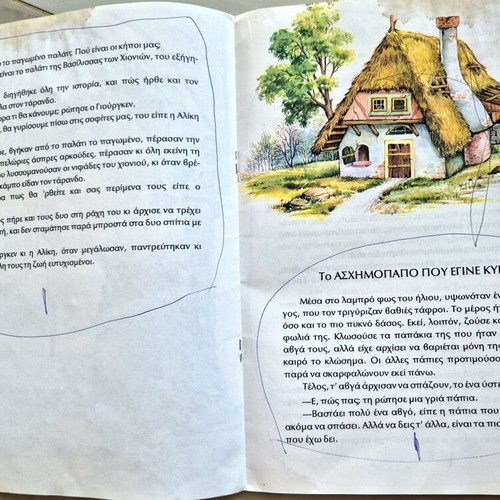 το παγωμένο παλάτι; Πού είναι οι κήποι μας;
είναι το παλάτι της Βασίλισσας των Χιονιών, του εξήγη-
διηγήθηκε όλη την ιστορία, και πώς ήρθε και τον
στον τάρανδο.
τι θα κάνουμε; ρώτησε ο Γιούργκεν.
θα γυρίσουμε πίσω στις σοφίτες μας, του είπε η Αλίκη
βγήκαν από το παλάτι το παγωμένο, πέρασαν την
άσπρες αρκούδες, πέρασαν κι όλη εκείνη τη
λυσσομανούσαν οι νιφάδες του χιονιού, κι όταν βρέ-
κάμπο είδαν τον τάρανδο.
πως θα 'ρθείτε και σας περίμενα τους είπε ο
πήρε και τους δυο στη ράχη του κι άρχισε να τρέχει
και δεν σταμάτησε παρά μπροστά στα δυο σπίτια με
κι η Αλίκη, όταν μεγάλωσαν, παντρεύτηκαν κι
τους τη ζωή ευτυχισμένοι.
Το ΑΣΧΗΜΟΠΑΠΟ ΠΟΥ ΕΓΙΝΕ ΚΥ
Μέσα στο λαμπρό φως του ήλιου, υψωνόταν έν
γος, που τον τριγύριζαν βαθιές τάφροι. Το μέρος ή
όσο και το πιο πυκνό δάσος. Εκεί, λοιπόν, ζούσε κ
φωλιά της. Κλωσούσε τα παπάκια της που ήταν
αβγά τους, αλλά είχε αρχίσει να βαριέται μόνη της
καιρό το κλώσημα. Οι άλλες πάπιες προτιμούσα
παρά να σκαρφαλώνουν εκεί πάνω.
Τέλος, τ' αβγά άρχισαν να σπάζουν, το ένα ύστε
—Ε, πώς πας; τη ρώτησε μια γριά πάπια.
—Βαστάει πολύ ένα αβγό, είπε η πάπια που
ακόμα να σπάσει. Αλλά να δεις τ' άλλα, είναι τα πιο
που έχω δει.